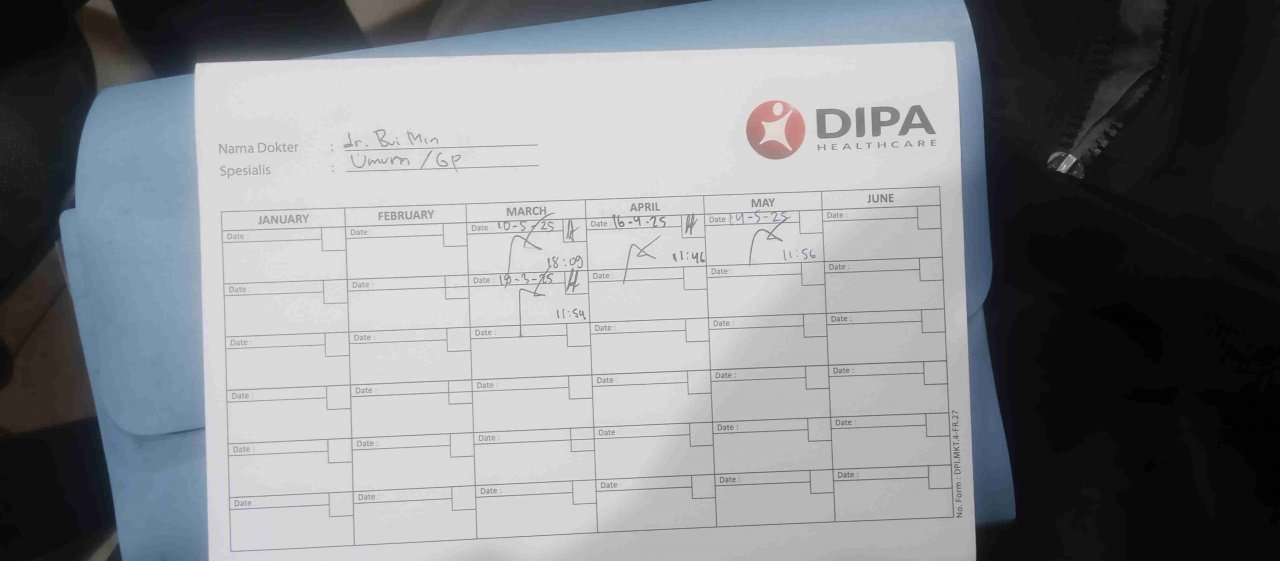 DIPA
HEALTHCARE
Nama Dokter : dr. Bui Min
Spesialis : Umum / GP
JANUARY FEBRUARY MARCH APRIL MAY JUNE
Date : Date : Date : 10-5-25 Date : 16-4-25 Date : 14-5-25 Date :
18:09 11:46 11:56
Date : Date Date : 19-3-25 Date : Date : Date :
11:54
Date : Date : Date : Date : Date : Date :
Date : Date : Date : Date : Date : Date :
Date : Date : Date : Date : Date : Date :
Date : Date : Date : Date : Date : Date :
No. Form : DPI.MKT.4-FR.27